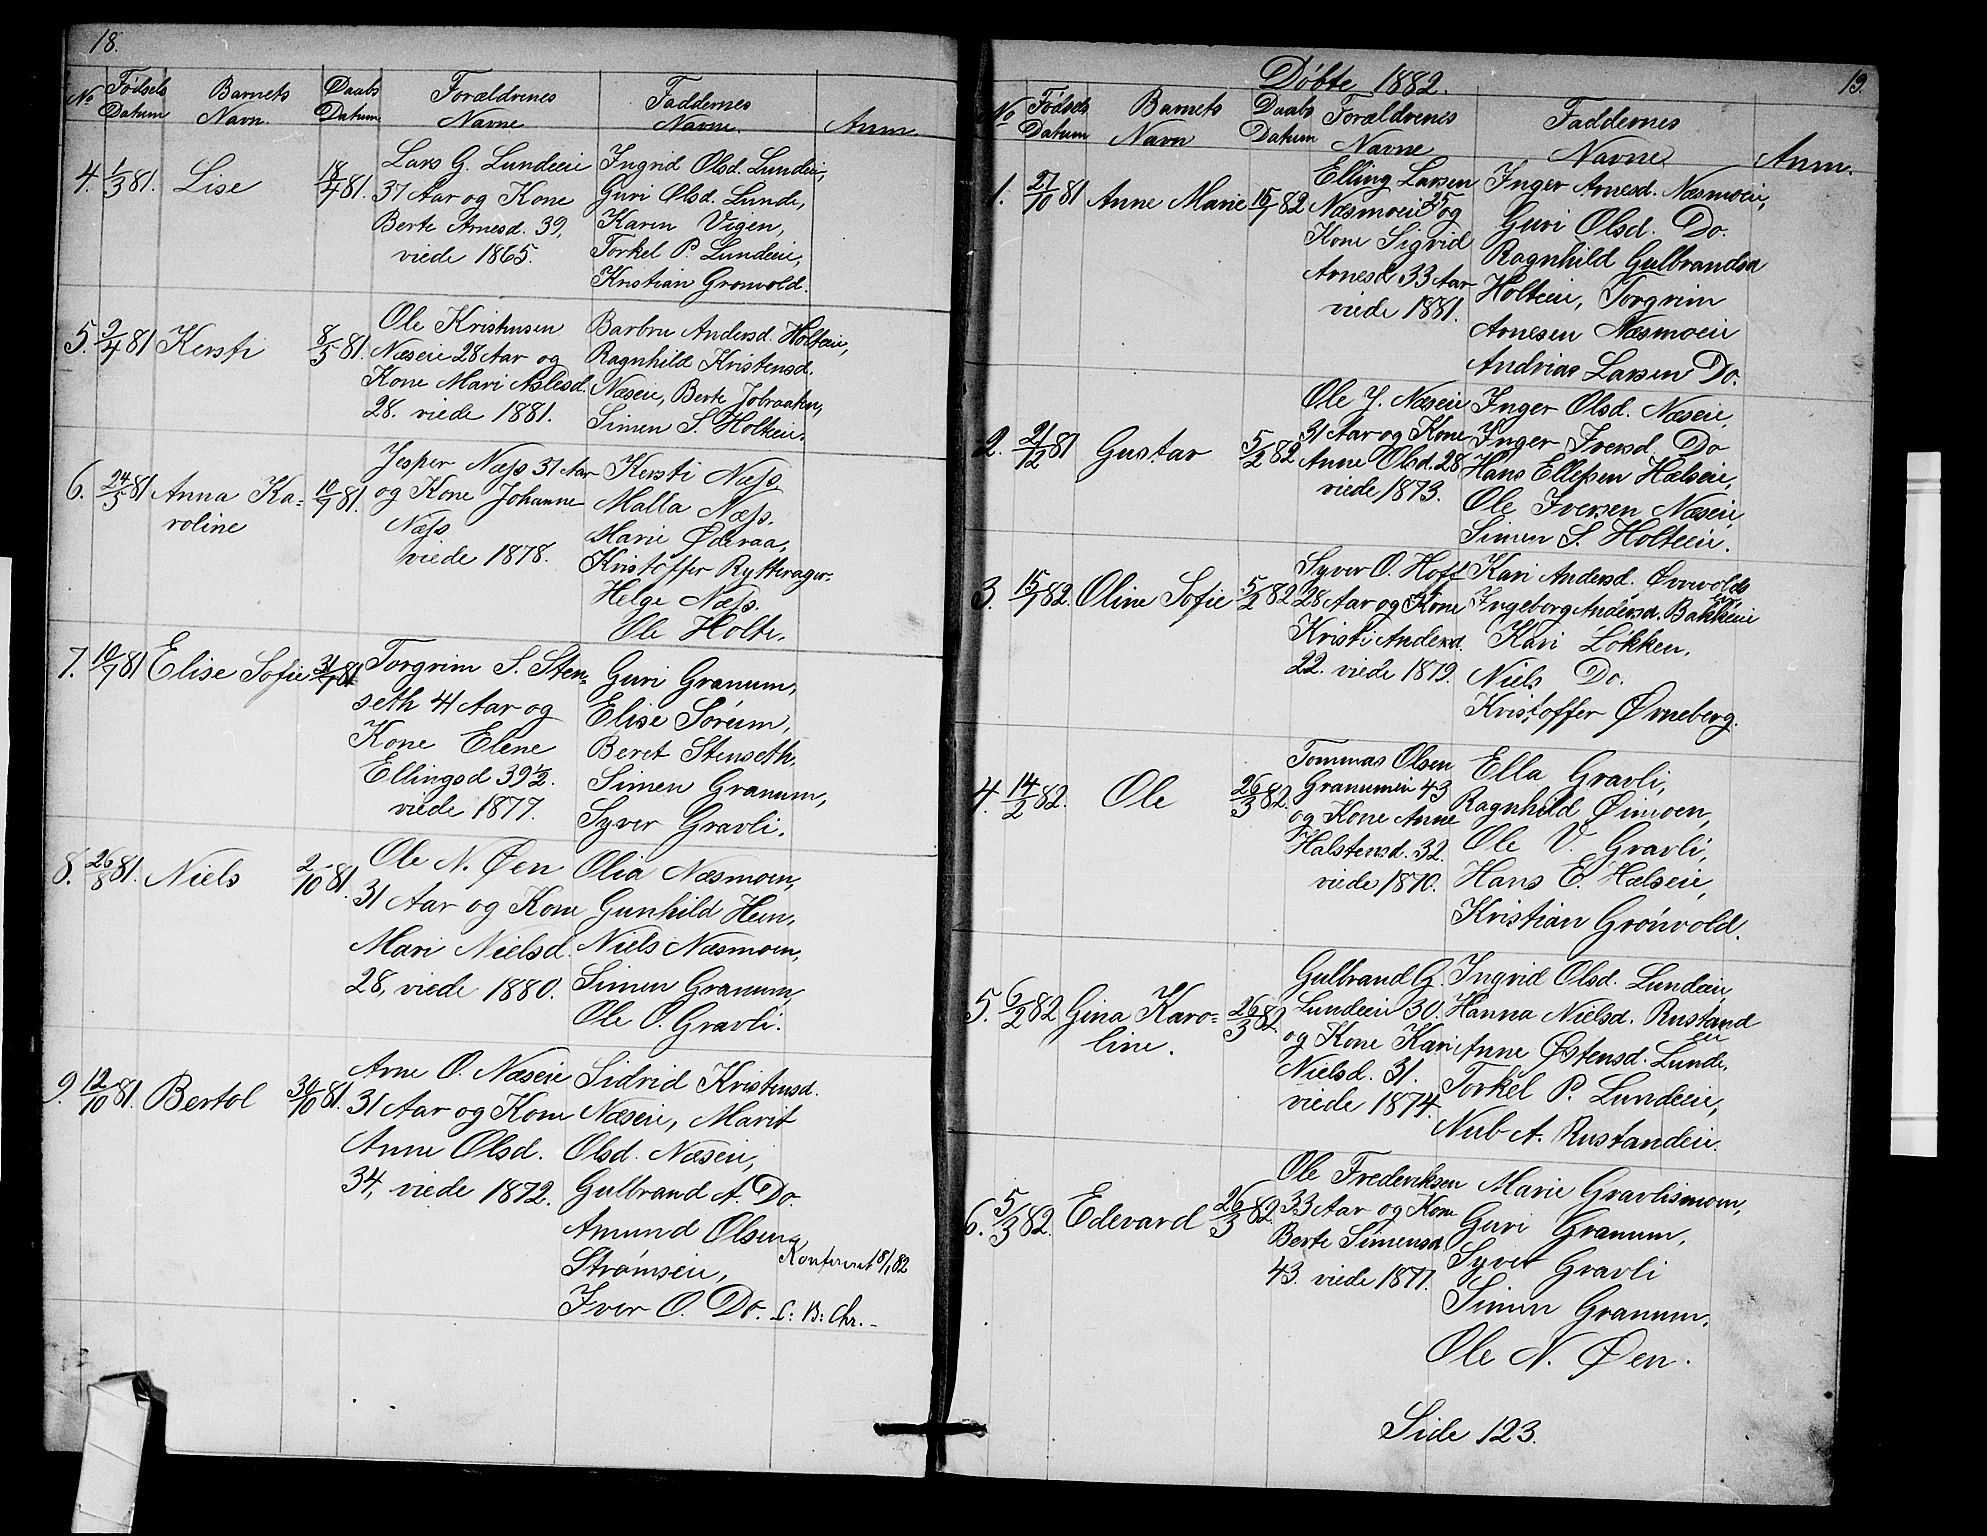 18.
No Fødsels Datum Barnets Navn. Daabs Datum Forældrenes Navne Faddernes Navne. Anm
4. 1/3 81. Lise 18/4 81.
Lars G. Lundeeie
37 Aar og Kone
Berte Arnesd. 39,
viede 1865.
Ingrid Olsd. Lundeie,
Guri Olsd. Lunde,
Karen Vigen,
Torkel P. Lundeeie,
Kristian Gronvold.
5. 2/4 81 Kersti 8/5 81.
Ole Kristensen
Næseie 28 Aar og
Kone Mari Aslesd.
28. viede 1881.
Barbru Andersd. Holteie,
Ragnhild Kristensd.
Næseie, Berte Jobraaten,
Simen S. Holteie.
6. 24/5 81 Anna Ka-
roline 10/7 81.
Jesper Næss 31 Aar
og Kone Johanne
Næss
viede 1878.
Kersti Næss
Malla Næss.
Marie Øderaa,
Kristoffer Rytterager.
Helge Næss.
Ole Holte.
7. 10/7 81 Elise Sofie 31/7 81
Torgrim S. Sten-
seth 41 Aar og
Kone Elene
Ellingsd 39 1/2.
viede 1877.
Guri Granum,
Elise Sørum,
Beret Stenseth.
Simen Granum,
Syver Gravli.
8. 26/8 81. Niels 2/10 81.
Ole N. Øen
31 Aar og Kone
Mari Nielsd.
28, viede 1880.
Olia Næsmoen,
Gunhild Heen,
Niels Næsmoen,
Simen Granum,
Ole O. Gravli.
9. 12/10 81. Bertol 30/10 81.
Arne O. Næseie
31 Aar og Kone
Anne Olsd.
34, viede 1872.
Sidrid Kristensd.
Næseie, Marit
Olsd. Næseie,
Gulbrand A. Do.
Amund Olsen
Strømseie,
Iver O. Do.
Konfereret 18/1 82
C: B: Chr.-
Døbte 1882.
19.
No Fødsels Datum Barnets Navn Daabs Datum Forældrenes Navne Faddernes Navne Anm.
1. 27/10 81 Anne Marie 15/1 82
Elling Larsen
Næsmoeie 25 og
Kone Sigrid
Arnesd 33 Aar
viede 1881.
Inger Arnesd. Næsmoeie,
Guri Olsd. Do.
Ragnhild Gulbrandsd
Holteie, Torgrim
Arnesen Næsmoeie
Andrias Larsen Do.
2. 21/12 81 Gustav 5/2 82
Ole J. Næseie
31 Aar og Kone
Anne Olsd. 28
viede 1873.
Inger Olsd. Næseie,
Inger Iversd. Do
Hans Ellefsen Hælseie,
Ole Iversen Næseie,
Simen S. Holteeie.
3. 15/1 82. Oline Sofie 5/2 82
Syver O. Hoff
28 Aar og Kone
Kristi Andersd.
22. viede 1879.
Kari Andersd. Ørnvolds
eie
Ingeborg Andersd. Bakkeeie
Kari Løkken,
Niels Do.
Kristoffer Ørneberg.
4. 14/2 82. Ole 26/3 82.
Tommas Olsen
Granumeie 43
og Kone Anne
Halstensd. 32.
viede 1870.
Ella Gravli,
Ragnhild Øimoen,
Ole V. Gravli,
Hans E. Hælseie,
Kristian Grönvold.
5. 6/2 82. Gina Karo-
line. 26/3 82.
Gulbrand G.
Lundeeie 30.
og Kone Kari
Nielsd. 31.
viede 1874.
Ingrid Olsd. Lundeie,
Hanna Nielsd. Rustand
eie
Anne Østensd. Lunde,
Torkel P. Lundeeie,
Nub A. Rustandeie.
6. 5/3 82. Edevard 26/3 82.
Ole Frederiksen
33 Aar og Kone
Berte Simensd.
43. viede 1877.
Marie Gravlismoen,
Guri Granum,
Syver Gravli
Simen Granum.
Ole N. Øen.
Side 123.